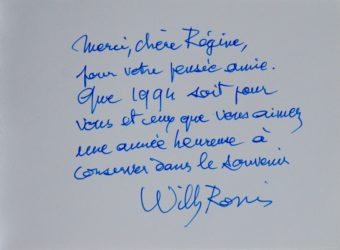 Merci, chère Régine,
pour votre pensée amie.
Que 1994 soit pour
vous et ceux que vous aimez
une année heureuse à
conserver dans le souvenir
Willy Ronis